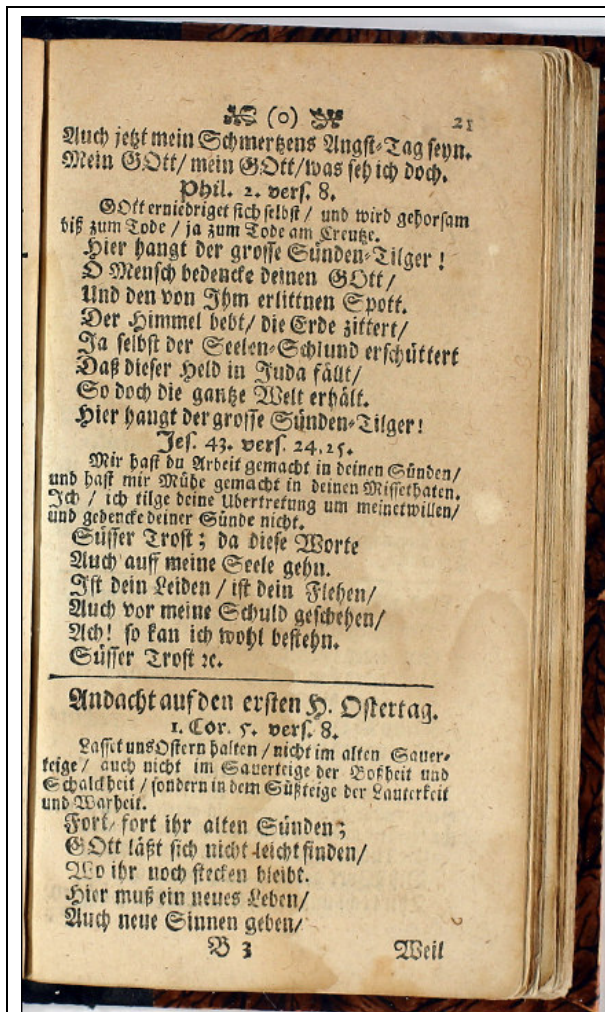 (o) 21
Auch jetzt mein Schmertzens Angst-Tag seyn.
Mein GOtt/ mein GOtt/was seh ich doch.
Phil. 2. vers. 8.
GOtt erniedriget sich selbst / und wird gehorsam
biß zum Tode / ja zum Tode am Creutze.
Hier hangt der grosse Sünden-Tilger !
O Mensch bedencke deinen GOtt/
Und den von Ihm erlittnen Spott.
Der Himmel bebt/ die Erde zittert/
Ja selbst der Seelen-Schlund erschüttert
Daß dieser Held in Juda fällt/
So doch die gantze Welt erhält.
Hier hangt der grosse Sünden-Tilger!
Jes. 43. vers. 24.25.
Mir hast du Arbeit gemacht in deinen Sünden/
und hast mir Mühe gemacht in deinen Missethaten.
Ich / ich tilge deine Ubertretung um meinetwillen/
und gedencke deiner Sünde nicht.
Süsser Trost; da diese Worte
Auch auff meine Seele gehn.
Ist dein Leiden / ist dein Flehen/
Auch vor meine Schuld geschehen/
Ach! so kan ich wohl bestehn.
Süsser Trost ꝛc.
Andacht auf den ersten H. Ostertag.
1. Cor. 5. vers. 8.
Lasset uns Ostern halten / nicht im alten Sauer-
teige / auch nicht im Sauerteige der Boßheit und
Schalckheit / sondern in dem Süßteige der Lauterkeit
und Warheit.
Fort/ fort ihr alten Sünden;
GOtt läßt sich nicht leicht finden/
Wo ihr noch stecken bleibt.
Hier muß ein neues Leben/
Auch neue Sinnen geben/
B 3 Weil